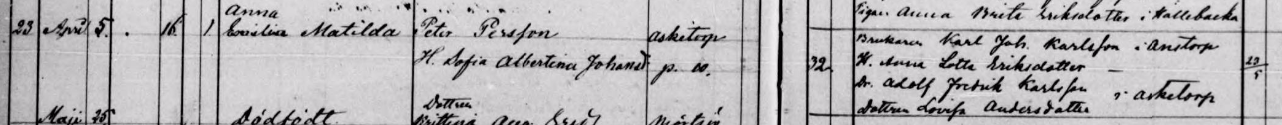 Anna
23 April 5. . 16. 1 Emilia Matilda Peter Persson asketorp
H. Sofia Albertina Johansd p. 10.
Maji 25 Dödfödt Dottren
Anna
Pigan Anna Brita Eriksdotter i Hallebacka
Brukaren Karl Joh. Karlsson i anstorp
32. H. Anna Lotta Eriksdotter —
Dr. Adolf Fredrik Karlsson i asketorp
dottren Lovisa Andersdotter
23/5